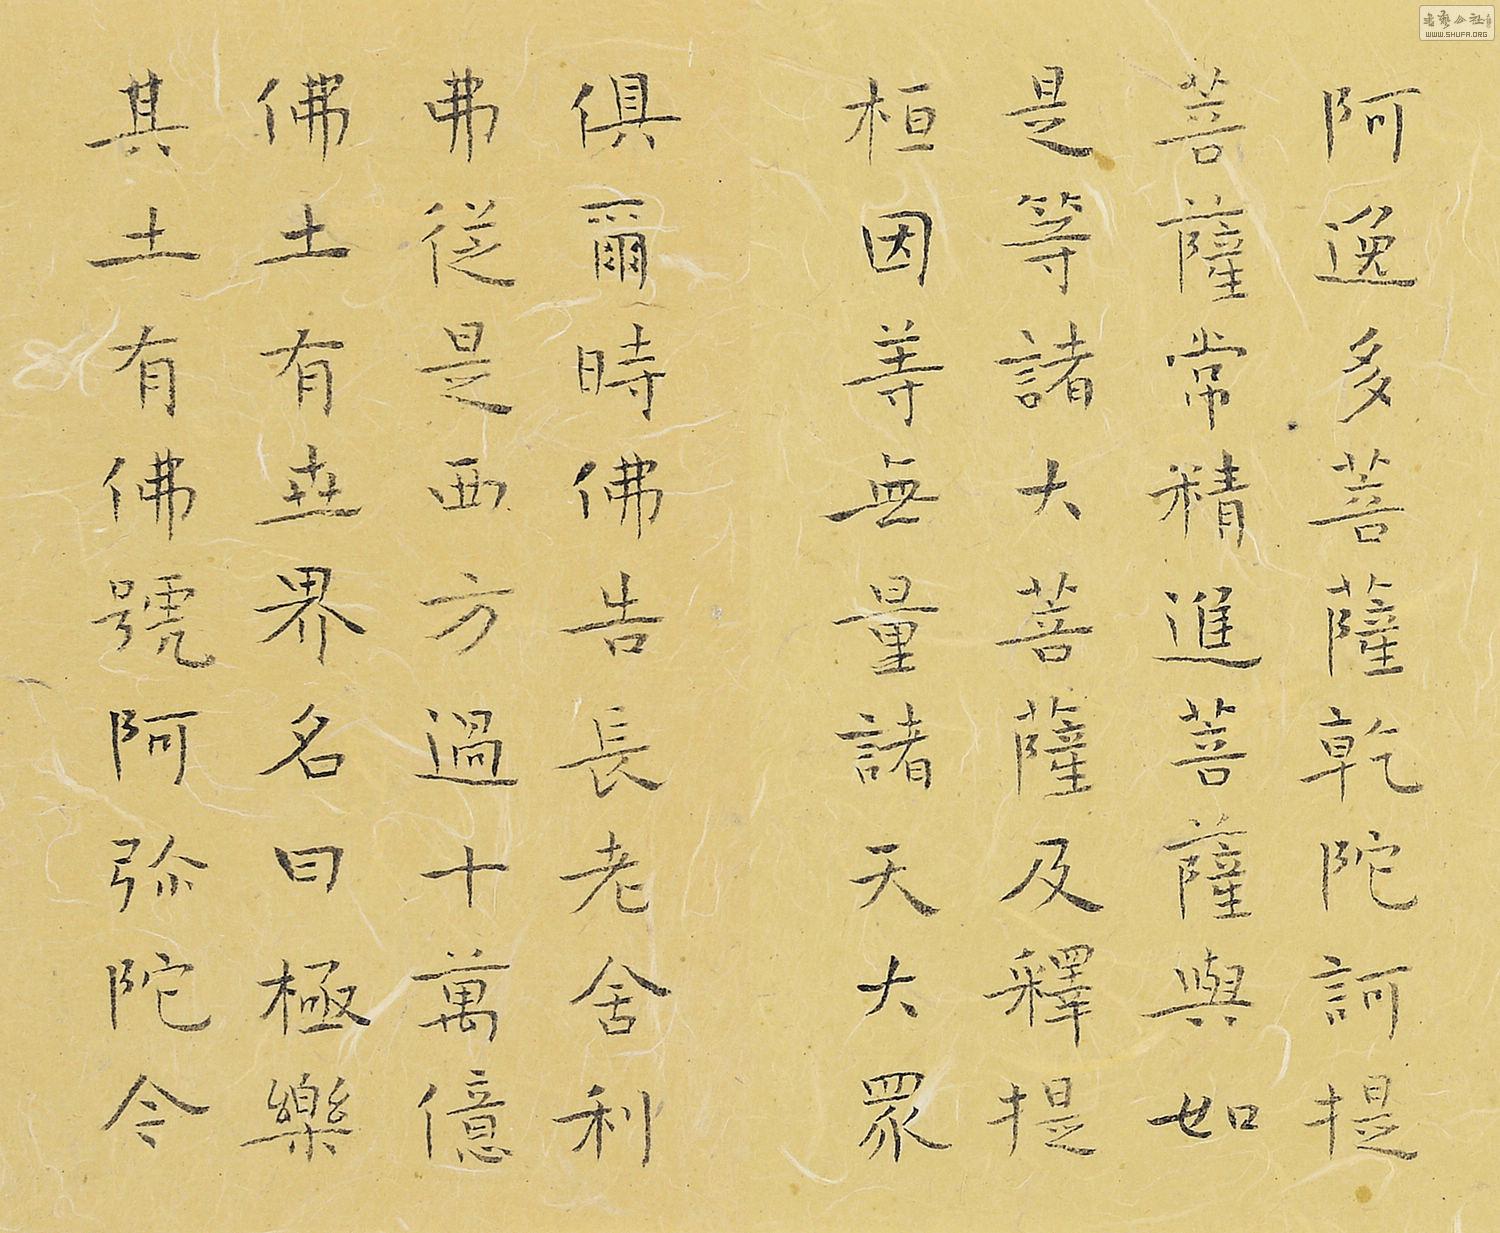 阿逸多菩薩乾陀訶提
菩薩常精進菩薩與如
是等諸大菩薩及釋提
桓因等無量諸天大眾
俱爾時佛告長老舍利
弗從是西方過十萬億
佛土有世界名曰極樂
其土有佛號阿弥陀令
WWW.SHUFA.ORG